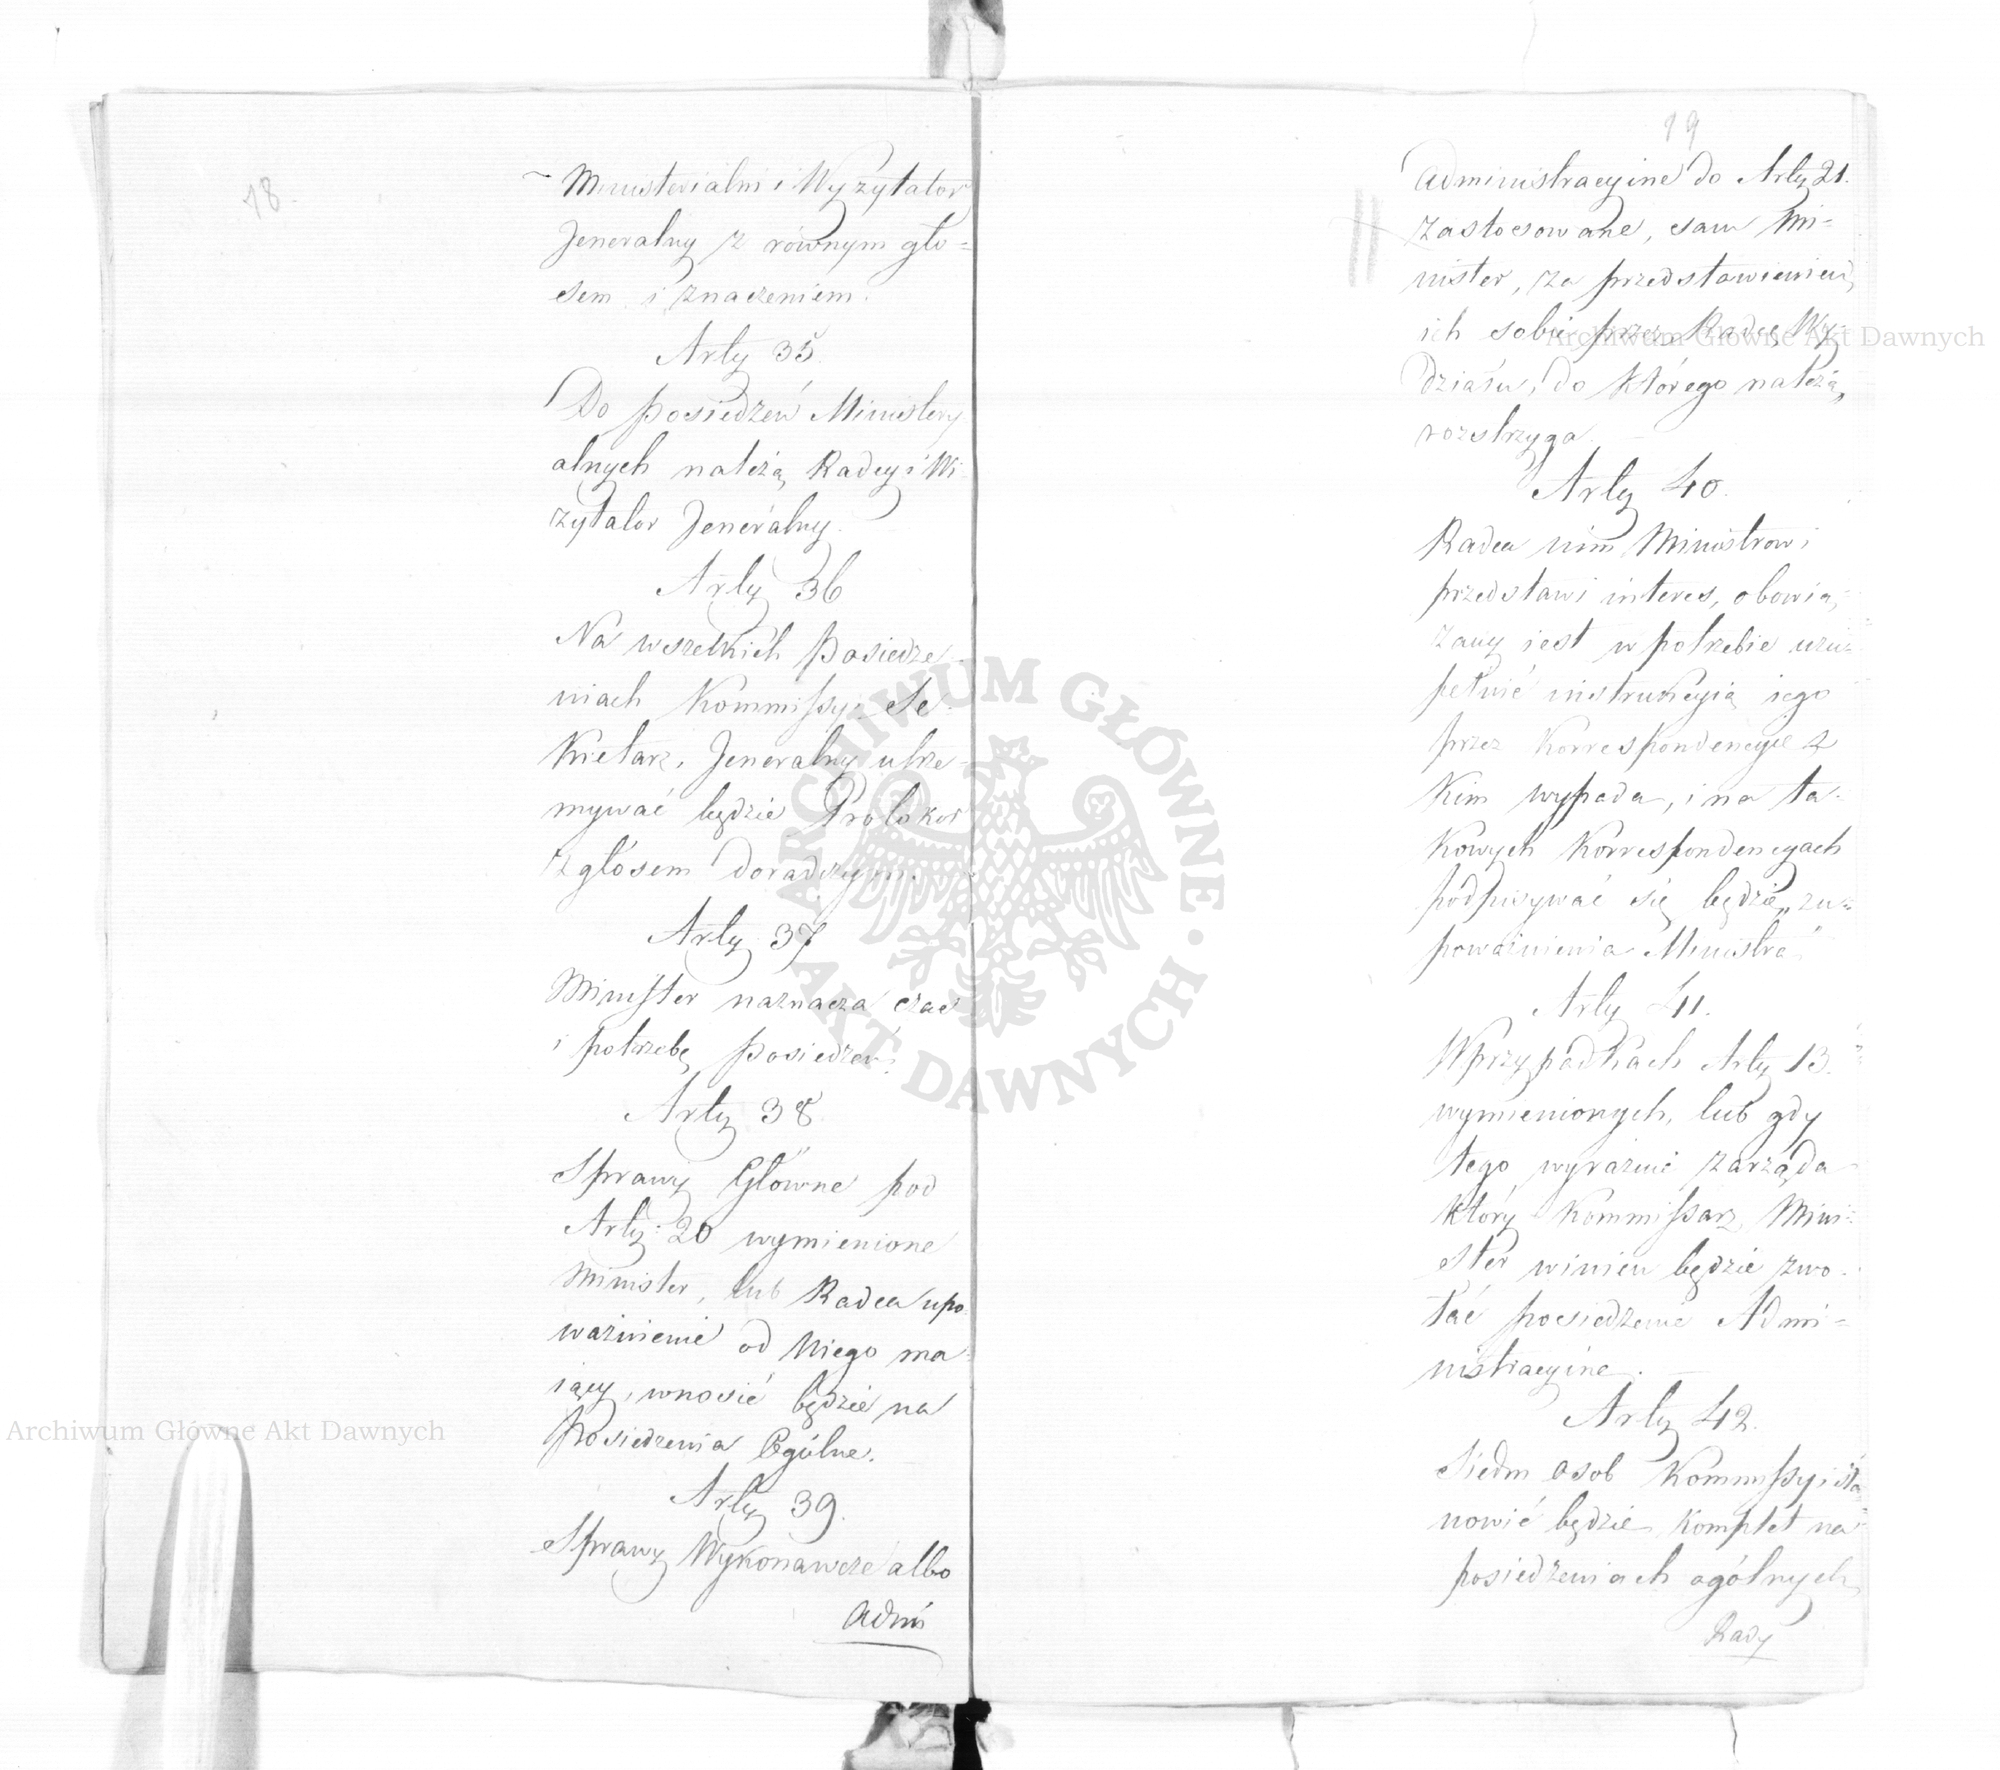 18.
Ministerialni i Wyzytator
Jeneralny z równym gło=
sem i znaczeniem.
Arty 35.
Do posiedzeń Ministery
alnych należą Radcy i Wi=
zytator Jeneralny.
Arty 36
Na wszelkich Posiedze=
niach Kommissyi Se=
kretarz Jeneralny utrze=
mywać będzie Protokoł
z głosem doradczym.
Arty 37
Minister naznacza czas
i potrzebę posiedzeń.
Arty 38.
Sprawy Główne pod
Arty: 20 wymienione
Minister, lub Radca upo=
ważnienie od Niego ma=
iący, wnosić będzie na
Posiedzenia Ogólne.
Arty 39.
Sprawy Wykonawcze albo
Admi
19
Administracyine do Arty 21.
zastosowane, sam Mi=
nister, za przedstawieniem
ich sobie przez Radcę Wy=
działu, do którego należą,
rozstrzyga.
Arty 40.
Radca nim Ministrowi
przedstawi interes, obowią=
zany iest w potrzebie uzu=
pełnić instrukcyią iego
przez Korrespondencye z
Kim wypada, i na ta=
kowych Korrespondencyach
podpisywać się będzie „z u=
poważnienia Ministra"
Arty 41.
W przypadkach Arty 13.
wymienionych, lub gdy
tego wyraźnie zarząda
który Kommissarz, Mini=
ster winien będzie zwo=
łać posiedzenie Admi=
nistracyine.
Arty 42.
Siedm osob Kommissyi sta=
nowić będzie Komplet na
posiedzeniach ogólnych
Rady
Archiwum Główne Akt Dawnych
Archiwum Główne Akt Dawnych
ARCHIWUM GŁÓWNE · AKT DAWNYCH